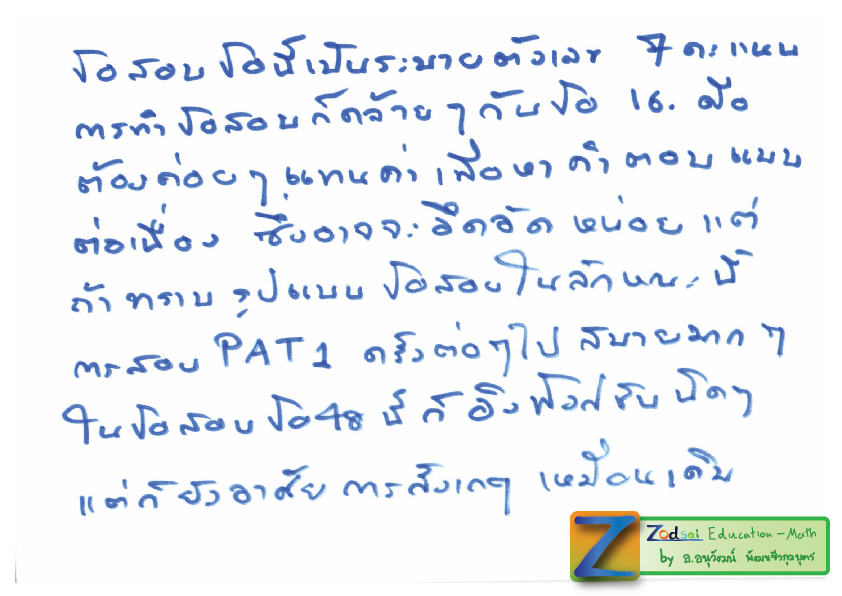 ข้อสอบข้อนี้เป็นระบายตัวเลข 7 คะแนน
การทำข้อสอบก็คล้ายๆกับข้อ 16. คือ
ต้องค่อยๆ แทนค่า เพื่อหา คำตอบ แบบ
ต่อเนื่อง ซึ่งอาจจะอึดอัด หน่อย แต่
ถ้า ทราบ รูปแบบ ข้อสอบในลักษณะนี้
การสอบ PAT1 ครั้งต่อๆไป สบายมาก ๆ
ในข้อสอบข้อ48 นี้ ก็ อิงฟังก์ชันนิดๆ
แต่ก็ยังอาศัย การสังเกตุ เหมือนเดิม
Z Zodsai Education - Math
by อ.อนุวัฒน์